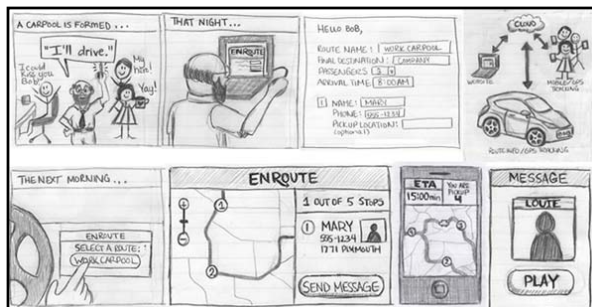 A CARPOOL IS FORMED...
"I'll drive."
I could
kiss you
Bob!
My
hero!
Yay!
THAT NIGHT...
ENROUTE
HELLO BOB,
ROUTE NAME: WORK CARPOOL
FINAL DESTINATION: COMPANY
PASSENGERS 3
ARRIVAL TIME: 8:00AM
1 NAME: MARY
PHONE: 555-1234
PICKUP LOCATION:
(optional)
CLOUD
WEBSITE
MOBILE/GPS
TRACKING
THE NEXT MORNING...
ENROUTE
SELECT A ROUTE:
WORK CARPOOL
ENROUTE
1
2
1 OUT OF 5 STOPS
1 MARY
555-1234
1771 PLYMOUTH
SEND MESSAGE
ETA
15:00min
YOU ARE
PICKUP
4
MESSAGE
LOUIE
PLAY